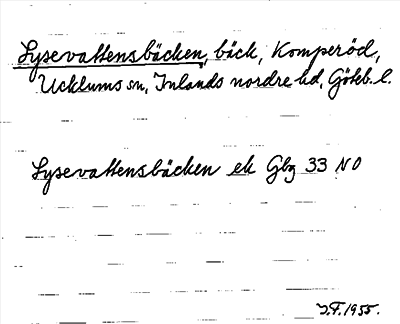 Lysevattensbäcken, bäck, Komperöd,
Ucklums sn, Inlands nordre hd, Göteb. l.
Lysevattensbäcken ek Gbg 33 NO
J.F. 1955.